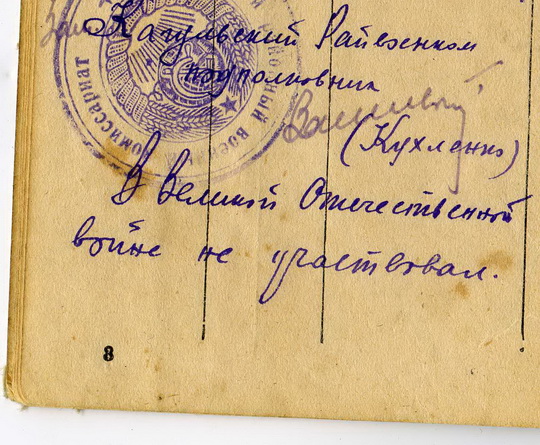 Кагульский Райвоенком
подполковник
(Кухленко)
В Великой Отечественной
войне не участвовал.
8
комиссариат